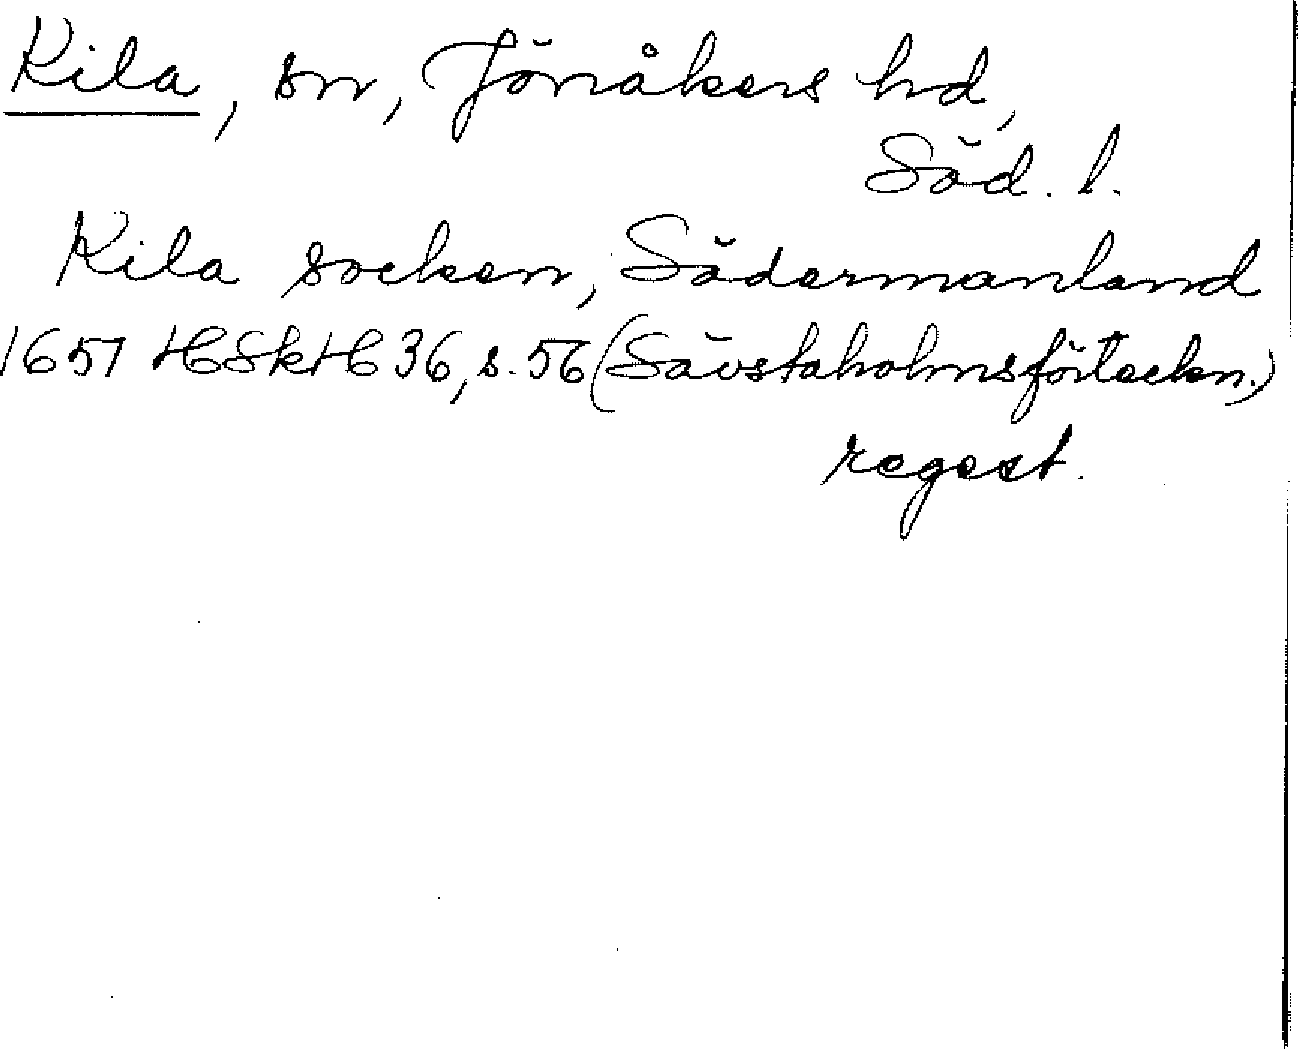 Kila, sn, Jönåkers hd,
Söd. l.
Kila socken, Södermanland
1657 HSkH 36, s. 56 (Sävstaholmsförteckn.)
regest.